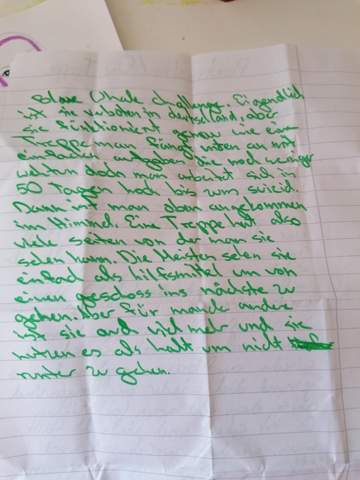 Blaue Whale challenge. Eigendlich
ist sie verboten in deutschland. aber
sie funktioniert genau wie eine
Treppe man fängt unten an mit
einfachen aufgaben die noch weniger
wehtun doch man arbeitet sich in
50 Tagen hoch bis zum suizid.
Dann ist man oben angekommen
im Himmel. Eine Treppe hat also
viele seiten von der man sie
sehen kann. Die Meisten sehen sie
einfach als hilfsmittel um von
einem geschoss ins nächste zu
gehen. Aber für manche andere
ist sie auch viel mehr und sie
nutzen es als halt um nicht
runter zu gehen.